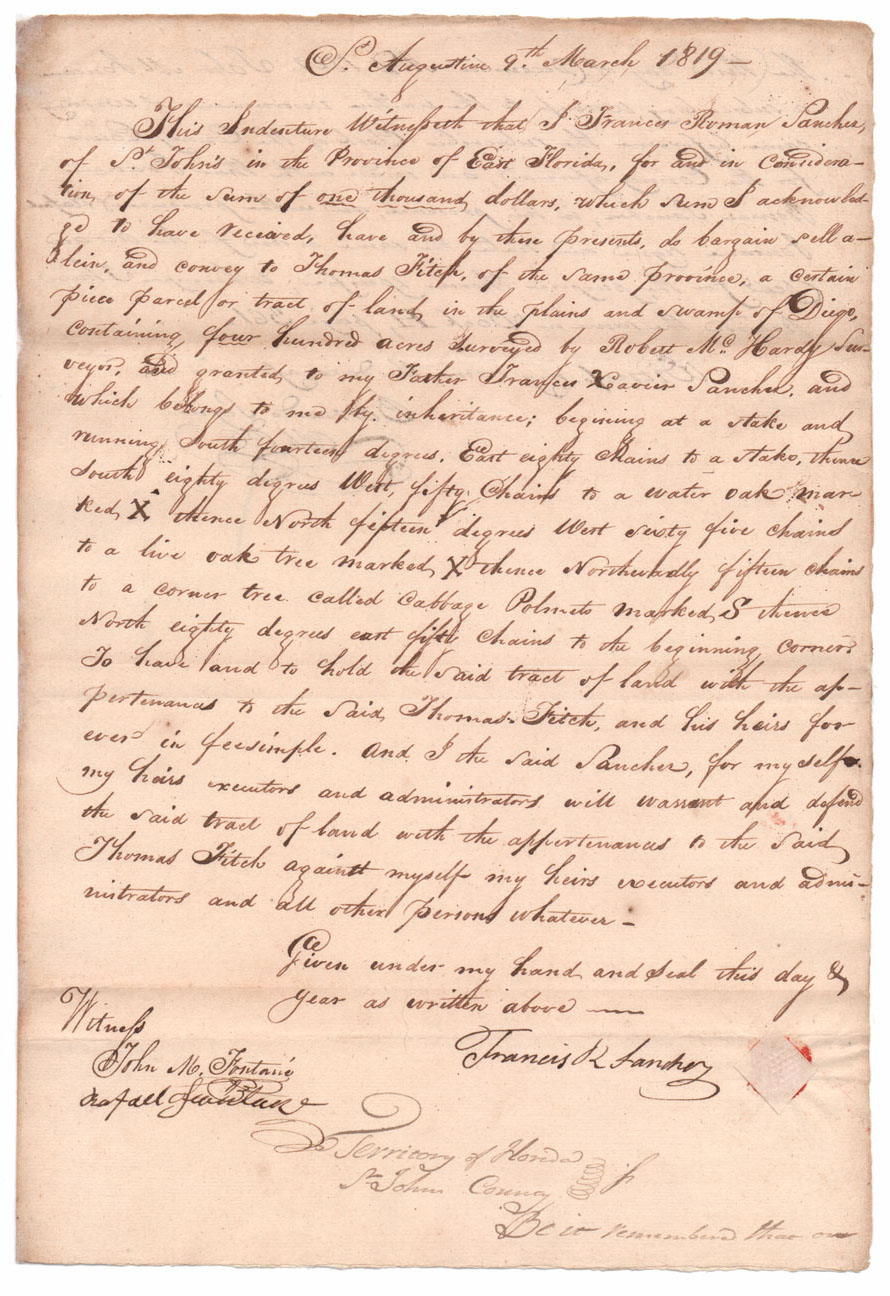 St. Augustine 9th. March 1819 —
This Indenture Witnesseth that, I Frances Roman Sanchez,
of St. John's in the Province of East Florida, for and in considera-
tion, of the sum of one thousand, dollars, which sum I acknowled-
ge to have received, have and by these presents, do bargain sell a-
lein, and convey to Thomas Fitch, of the same province, a certain
piece parcel or tract of land, in the plains and swamp of Diego,
containing, four hundred acres surveyed by Robert Mc. Hardy Sur-
veyor, and granted, to my Father Frances Xavier Sanchez, and
which belongs to me by inheritance; begining at a stake and
running, South fourteen degrees, East eighty Chains to a stake, thence
South eighty degrees West, fifty Chains to a water oak mar
ked, X thence North fifteen degrees West sixty five chains
to a live oak tree marked, X thence Northwardly fifteen chains
to a corner tree called Cabbage Polmeto marked, S thence
North eighty degrees east fifty chains to the beginning corner.
To have and to hold the said tract of land with the ap-
pertenances to the said, Thomas Fitch, and his heirs for
ever in feesimple. And I the said Sanchez, for my self
my heirs executors and administrators will warrent and defend
the said tract of land with the appertenances to the said,
Thomas Fitch against myself my heirs executors and admi-
nistrators and all other persons whatever —
Given under my hand and seal this day &
year as written above —
Witness
Francis R Sanchez
John M. Fontané
Rafael
Territory of Florida
St John County
Be it remembered that on